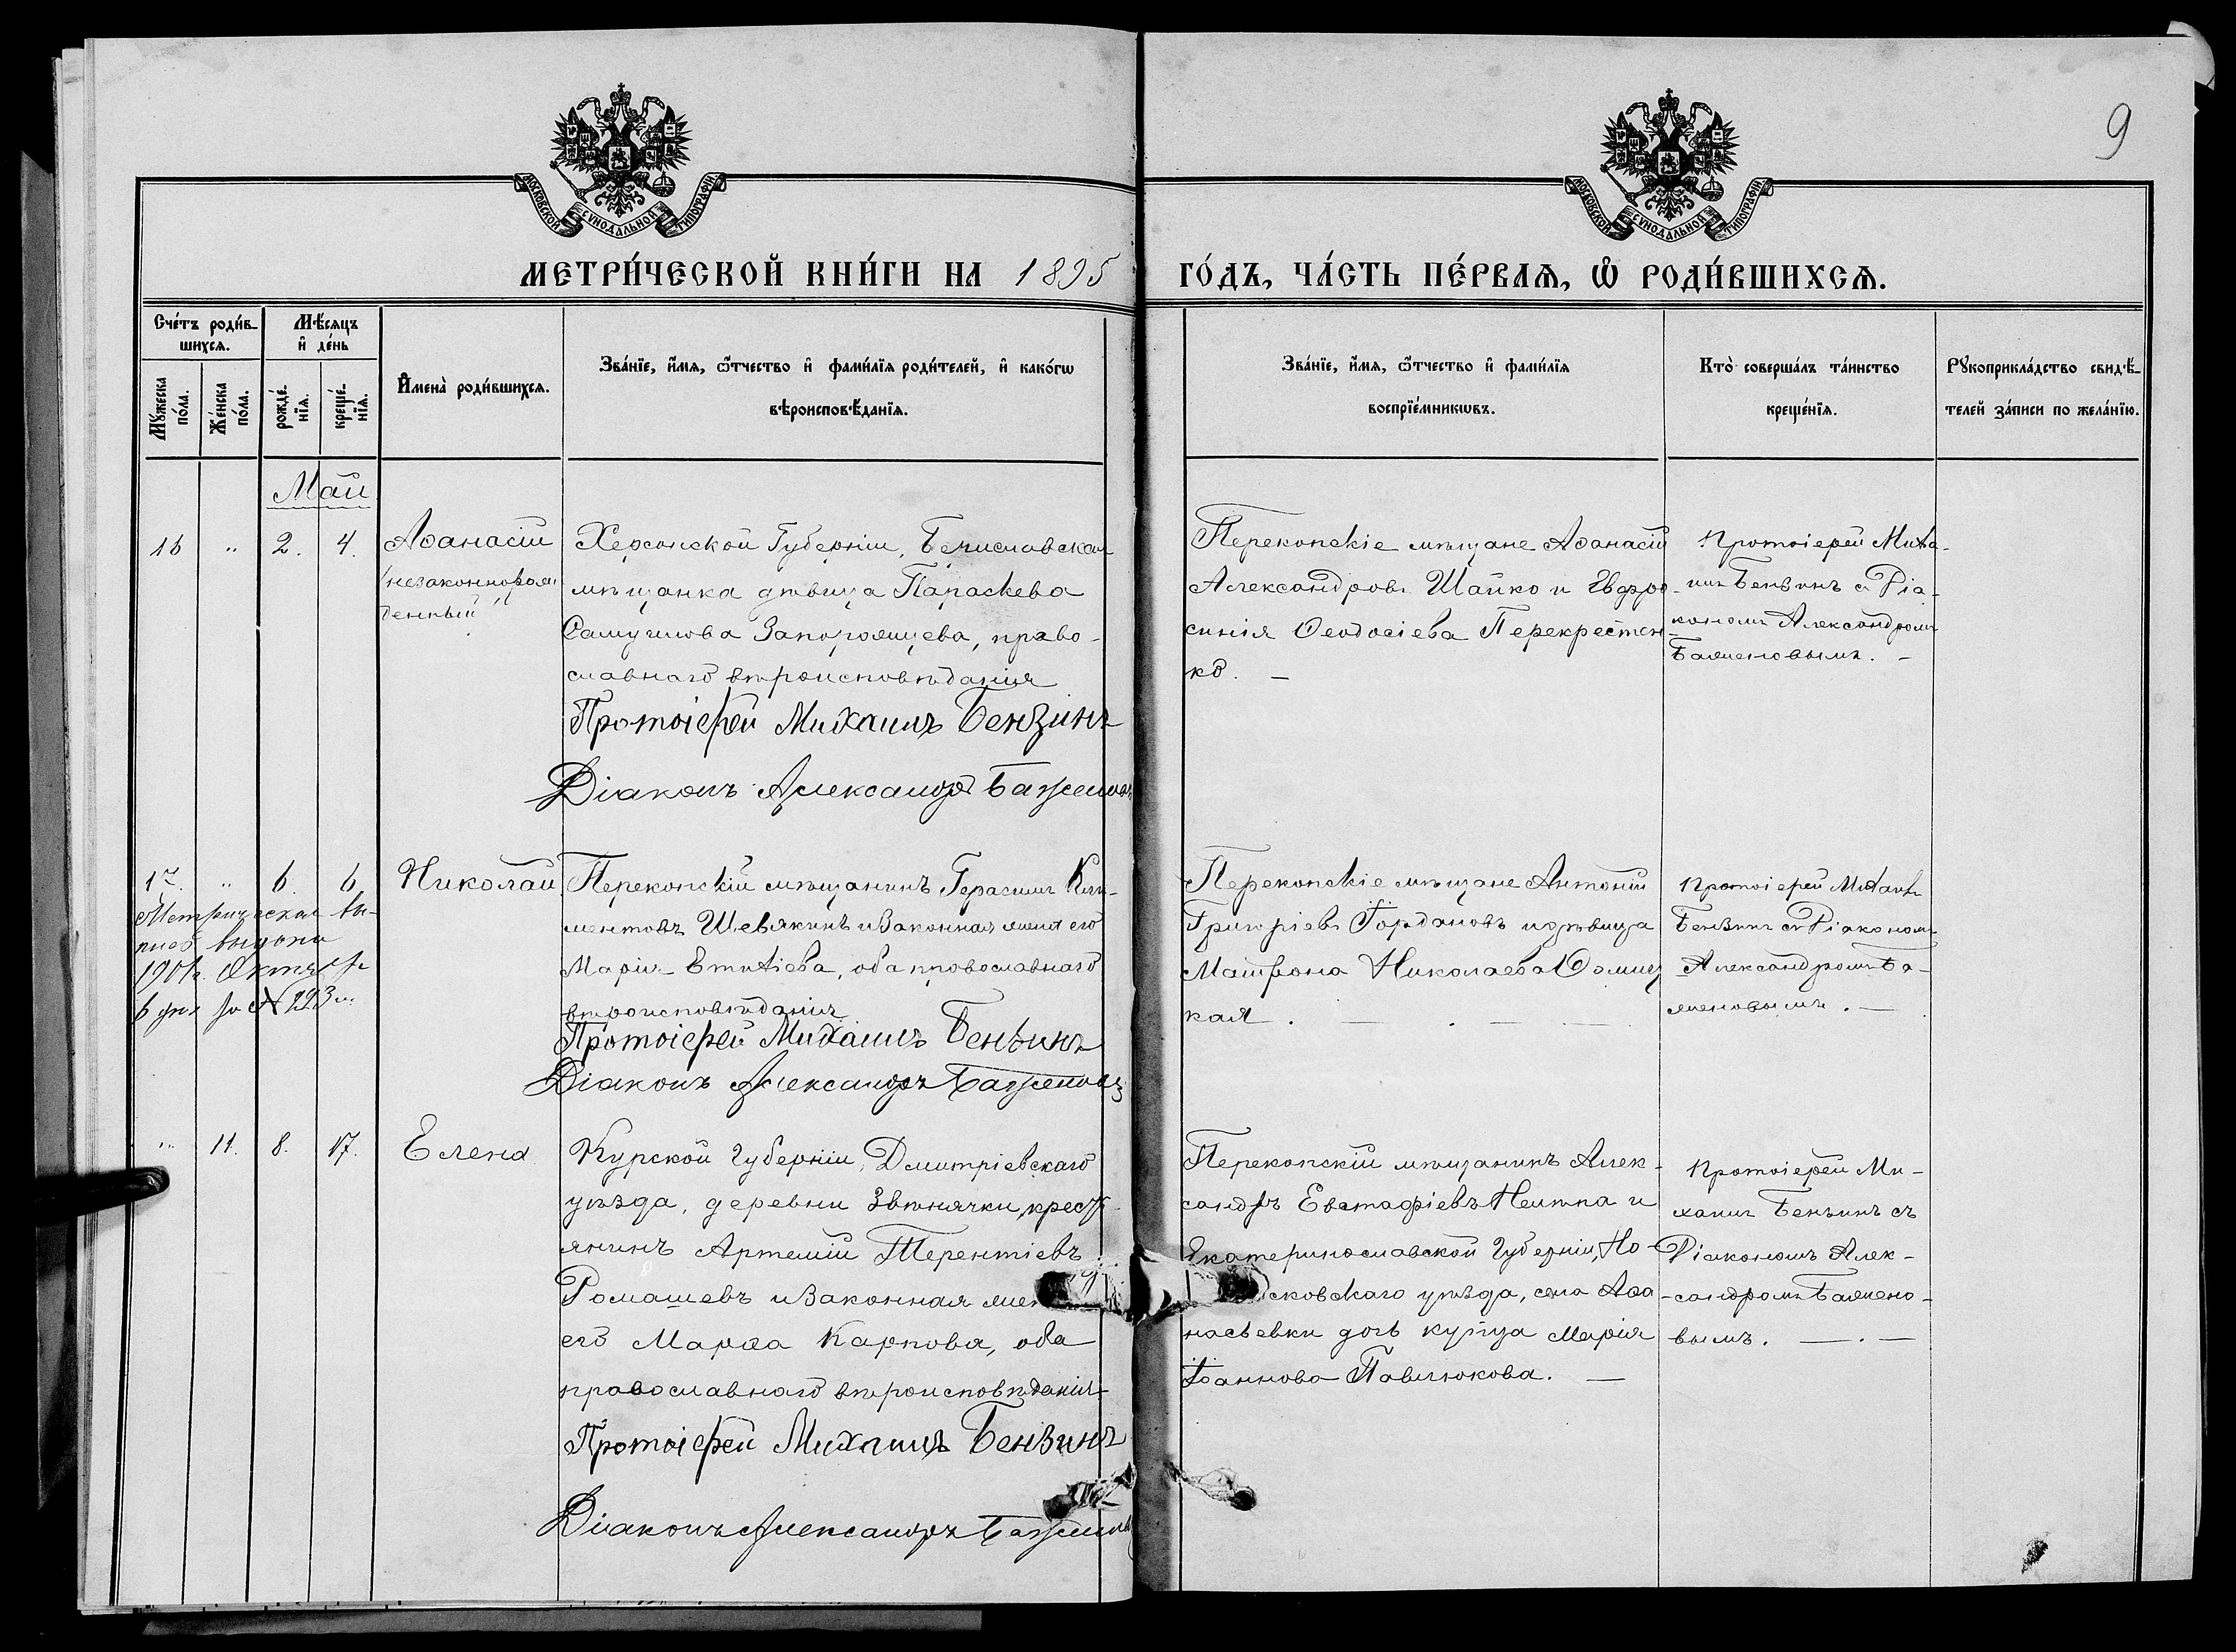 9
МОСКОВСКОЙ СѴНОДАЛЬНОЙ ТИПОГРАФІИ
МОСКОВСКОЙ СѴНОДАЛЬНОЙ ТИПОГРАФІИ
МЕТРИ́ЧЕСКОЙ КНИ́ГИ НА 1895 ГО́ДЪ, ЧА́СТЬ ПЕ́РВАЯ, Ѡ РОДИ́ВШИХСЯ.
Сче́тъ роди́в-
шихся.
Мѣ́сяцъ
и де́нь
Мꙋ́жеска
по́ла.
Же́нска
по́ла.
рожде́-
нїя.
креще́-
нїя.
Имена̀ роди́вшихся.
Зва́нїе, и́мя, ѻ҆́тчество и҆ фами́лїя роди́телей, и҆ како́гѡ
вѣроисповѣ́данїя.
Зва́нїе, и́мя, ѻ҆́тчество и҆ фами́лїя
воспрїе́мникѡвъ.
Кто̀ соверша́лъ та́инство
креще́нїя.
Рꙋкоприкла́дство свидѣ́-
телей за́писи по жела́нїю.
Май
16 " 2. 4. Аѳанасій
(незаконнорож-
денный)
Херсонской Губерніи, Бериславская
мѣщанка дѣвица Параскева
Самуилова Запорожцева, право-
славнаго вѣроисповѣданія
Протоіерей Михаилъ Бензинъ
Діаконъ Александръ Баженовъ
Перекопскіе мѣщане Аѳанасій
Александровъ Шайко и Евдро-
синія Ѳеодосіева Перекрестен-
ко. —
Протоіерей Миха-
илъ Бензинъ съ Діа-
кономъ Александромъ
Баженовымъ. —
17. " 6. 6. Николай
Метрическая вы-
пись выдана
1901г. Октября
6 дня за № 223 м.
Перекопскій мѣщанинъ Герасимъ Кли-
ментовъ Шевякинъ и законная жена его
Марія Евтихіева, оба православнаго
вѣроисповѣданія
Протоіерей Михаилъ Бензинъ
Діаконъ Александръ Баженовъ
Перекопскіе мѣщане Антоній
Григоріевъ Іордановъ и дѣвица
Матрона Николаева
кая. — . — —
Протоіерей Михаилъ
Бензинъ съ Діакономъ
Александромъ Ба-
женовымъ. —
" 11. 8. 17. Елена
Курской Губерніи, Дмитріевскаго
уѣзда, деревни Звѣнячки, крест-
янинъ Артемій Терентіевъ
Ромашевъ и законная жена
его Марѳа Карпова, оба
православнаго вѣроисповѣданія
Протоіерей Михаилъ Бензинъ
Діаконъ Александръ Баженовъ
Перекопскій мѣщанинъ Алек-
сандръ Евстафіевъ и
Екатеринославской Губерніи, Но-
сковскаго уѣзда, села Аѳа-
насьевки дочь купца Марія
Іоаннова Павлюкова. —
Протоіерей Ми-
хаилъ Бензинъ съ
Діакономъ Алек-
сандромъ Бажено-
вымъ. — . —